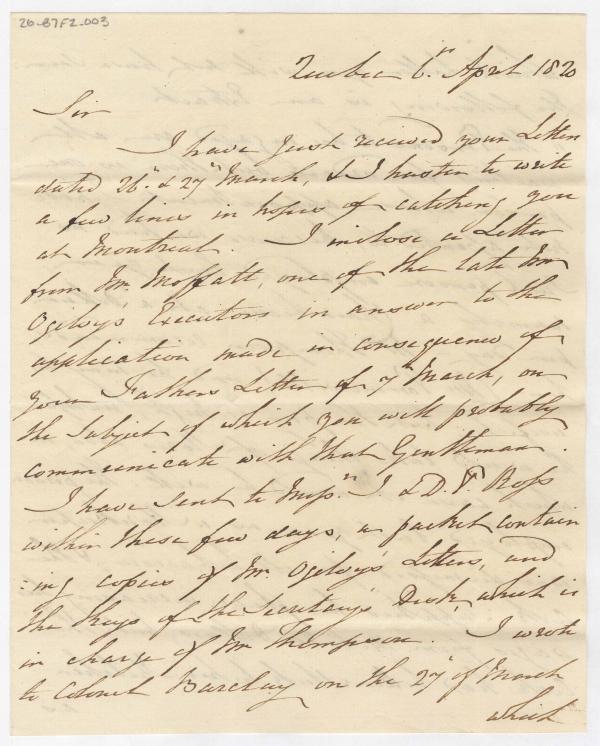 26-87F2-003
Quebec 6th April 1820
Sir
I have just received your Letter
dated 26th & 27th March, & I hasten to write
a few lines in hopes of catching you
at Montreal. I inclose a Letter
from Mr. Moffatt, one of the late Mr.
Ogilvy's Executors in answer to the
application made in consequence of
your Fathers Letter of 7th March, on
the subject of which you will probably
communicate with that Gentleman.
I have sent to Messrs. J. & D. Ross
within these few days, a packet contain
:ing copies of Mr. Ogilvy's Letters, and
the Keys of the Secretary's Desk, which is
in charge of Mr Thompson. I wrote
to Colonel Barclay on the 27th of March
which